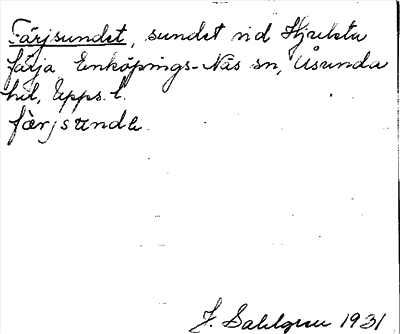 Färjsundet, sundet vid Hjulsta
färja Enköpings-Näs sn, Åsunda
hd, Upps. l.
färjsundə
J. Sahlgren 1931